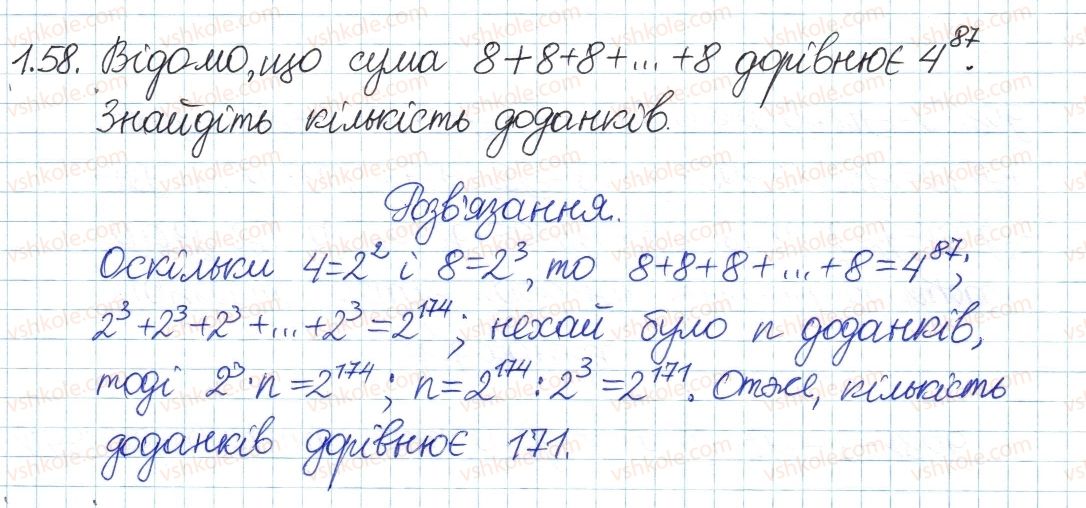 1.58. Відомо, що сума 8+8+8+...+8 дорівнює 4^87.
Знайдіть кількість доданків.
Розв'язання.
Оскільки 4=2^2 і 8=2^3, то 8+8+8+...+8=4^87;
2^3+2^3+2^3+...+2^3=2^174; нехай було n доданків,
тоді 2^3·n=2^174; n=2^174:2^3=2^171. Отже, кількість
доданків дорівнює 171.